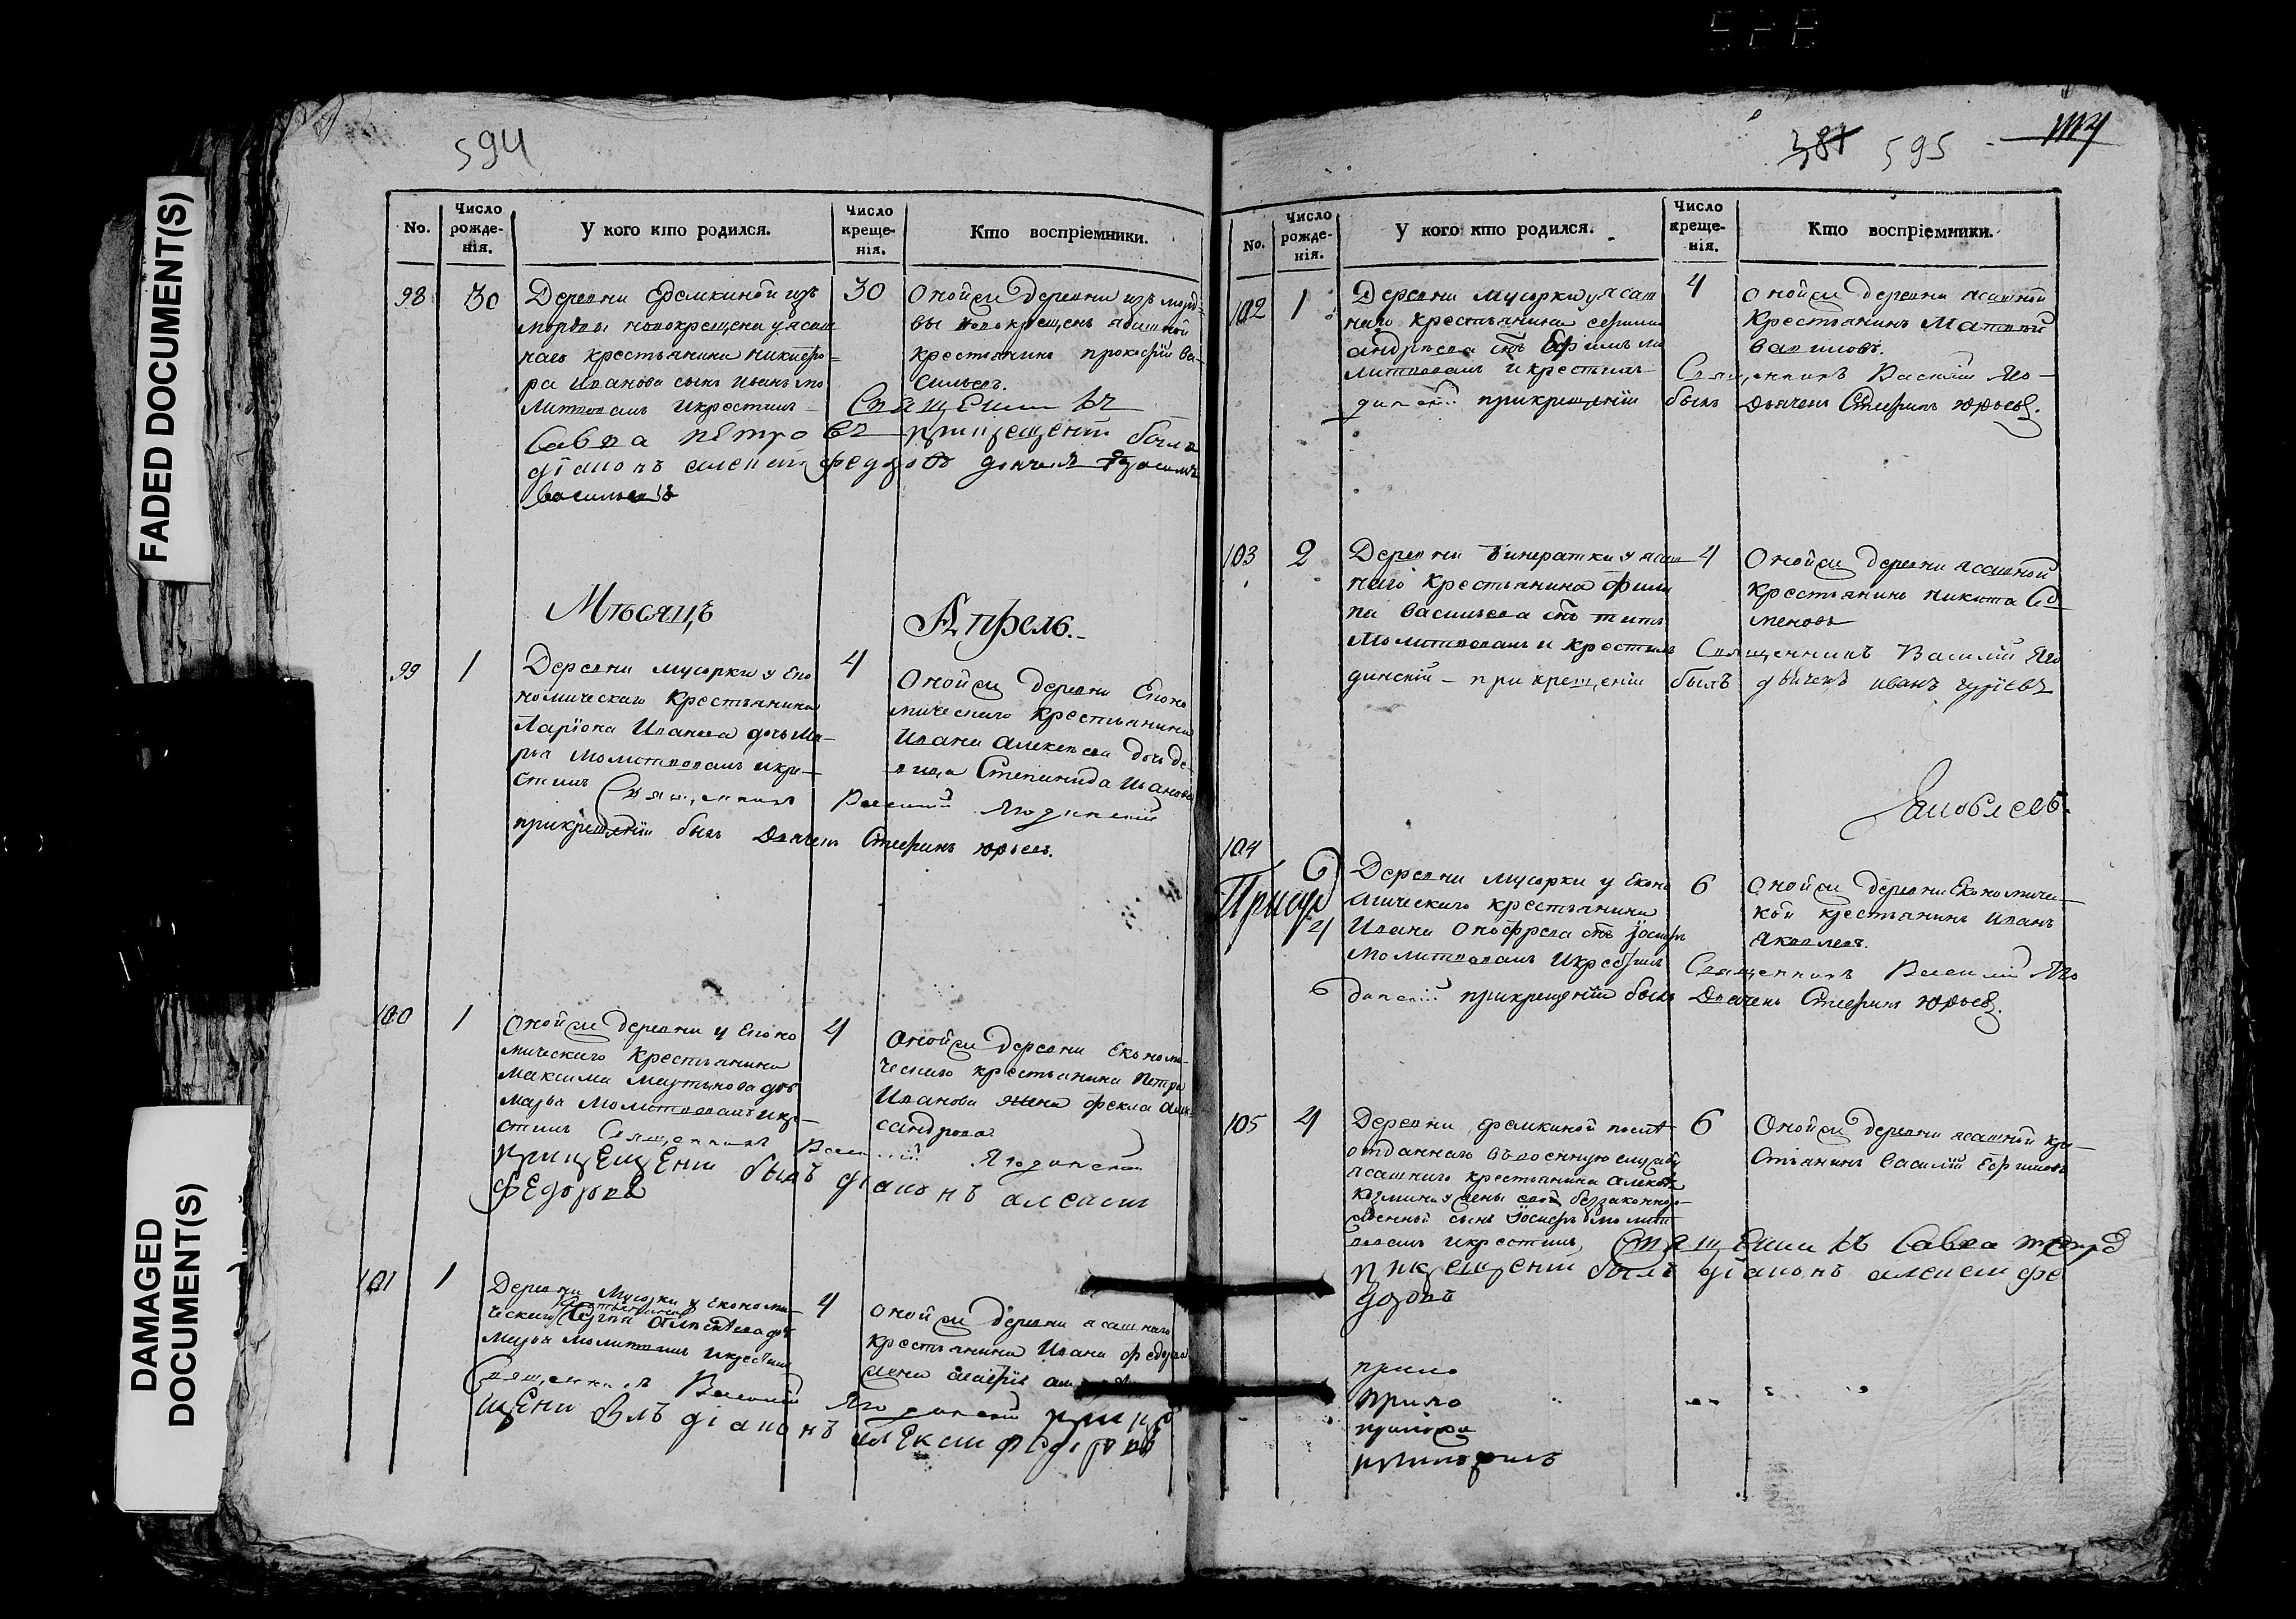 FADED DOCUMENT(S)
DAMAGED
DOCUMENT(S)
594
No.
Число рожде-нія.
У кого кто родился.
Число креще-нія.
Кто воспріемники.
98
30
Деревни Еремкиной изъ
мордвы новокрещена у ясаш
наго крестьянина Никифо-
ра Иванова сынъ Иванъ мо
литвовалъ и крестилъ
30
Оной же деревни изъ морд-
вы новокрещенъ ясашной
крестьянинъ Прокофій Ва-
сильевъ.
Священникъ
Савва Петровъ при крещеніи былъ
діаконъ алексій федоровъ дьячекъ
васильевъ
Мѣсяцъ
Апрель.
99
1
Деревни Мусорки у Еко
номическаго крестьянина
Ларіона Иванова дочь Ма-
рья молитвовалъ и кре-
стилъ Священникъ Василій Ягодинскій
при крещеніи былъ Дьячекъ Стефанъ Юрьевъ.
4
Оной же деревни Еконо
мическаго крестьянина
Ивана Алексѣева дочь де-
вица Степанида Иванова
100
1
Оной же деревни у Еконо
мическаго крестьянина
Максима Мартынова дочь
Марья молитвовалъ и кре-
стилъ Священникъ Василій Ягодинскій
при крещеніи былъ діаконъ алексій
федоровъ
4
Оной же деревни Економи-
ческаго крестьянина Петра
Иванова жена Фекла Алек-
сандрова
101
1
Деревни Мусорки у Економи-
ческаго крестьянина Алексѣева дочь
Марья молитвовалъ и крестилъ
Священникъ Василій Ягодинскій при кре
щени былъ діаконъ алексій федоровъ
4
Оной же деревни ясашнаго
крестьянина Ивана Федорова
жена
381 595
No.
Число рожде-нія.
У кого кто родился.
Число креще-нія.
Кто воспріемники.
102
1
Деревни Мусорки у ясаш
наго крестьянина
Андрѣева снъ Ефимъ мо
литвовалъ и крестилъ Священникъ Василій Яго-
динскій при крещеніи былъ Дьячекъ Стефанъ Юрьевъ.
4
Оной же деревни ясашной
крестьянинъ Матвѣй
Вавиловъ.
103
2
Деревни Бинератки у ясаш
наго крестьянина Фили
па Васильева снъ Титъ
Молитвовалъ и крестилъ Священникъ Василій Яго
динскій - при крещеніи былъ дьячекъ иванъ
4
Оной же деревни ясашной
крестьянинъ Никита Се
меновъ
Яковлевъ.
104
6
4
Деревни Мусорки у Еконо
мическаго крестьянина
Ивана Онофрева снъ Іосифъ
молитвовалъ и крестилъ Священникъ Василій Яго
динскій при крещеніи былъ Дьячекъ Стефанъ Юрьевъ.
6
Оной же деревни Економиче-
кой крестьянинъ Иванъ
Яковлевъ.
105
4
Деревни Еремкиной послѣ
отданнаго въ военную службу
ясашнаго крестьянина Алексѣя
Козмина у жены ево беззаконнорo-
жденной сынъ Іосифъ молит
вовалъ и крестилъ Священникъ Савва Петровъ
при крещеніи былъ діаконъ алексій фе
доровъ
6
Оной же деревни ясашной кре-
стьянинъ Василій Ефимовъ